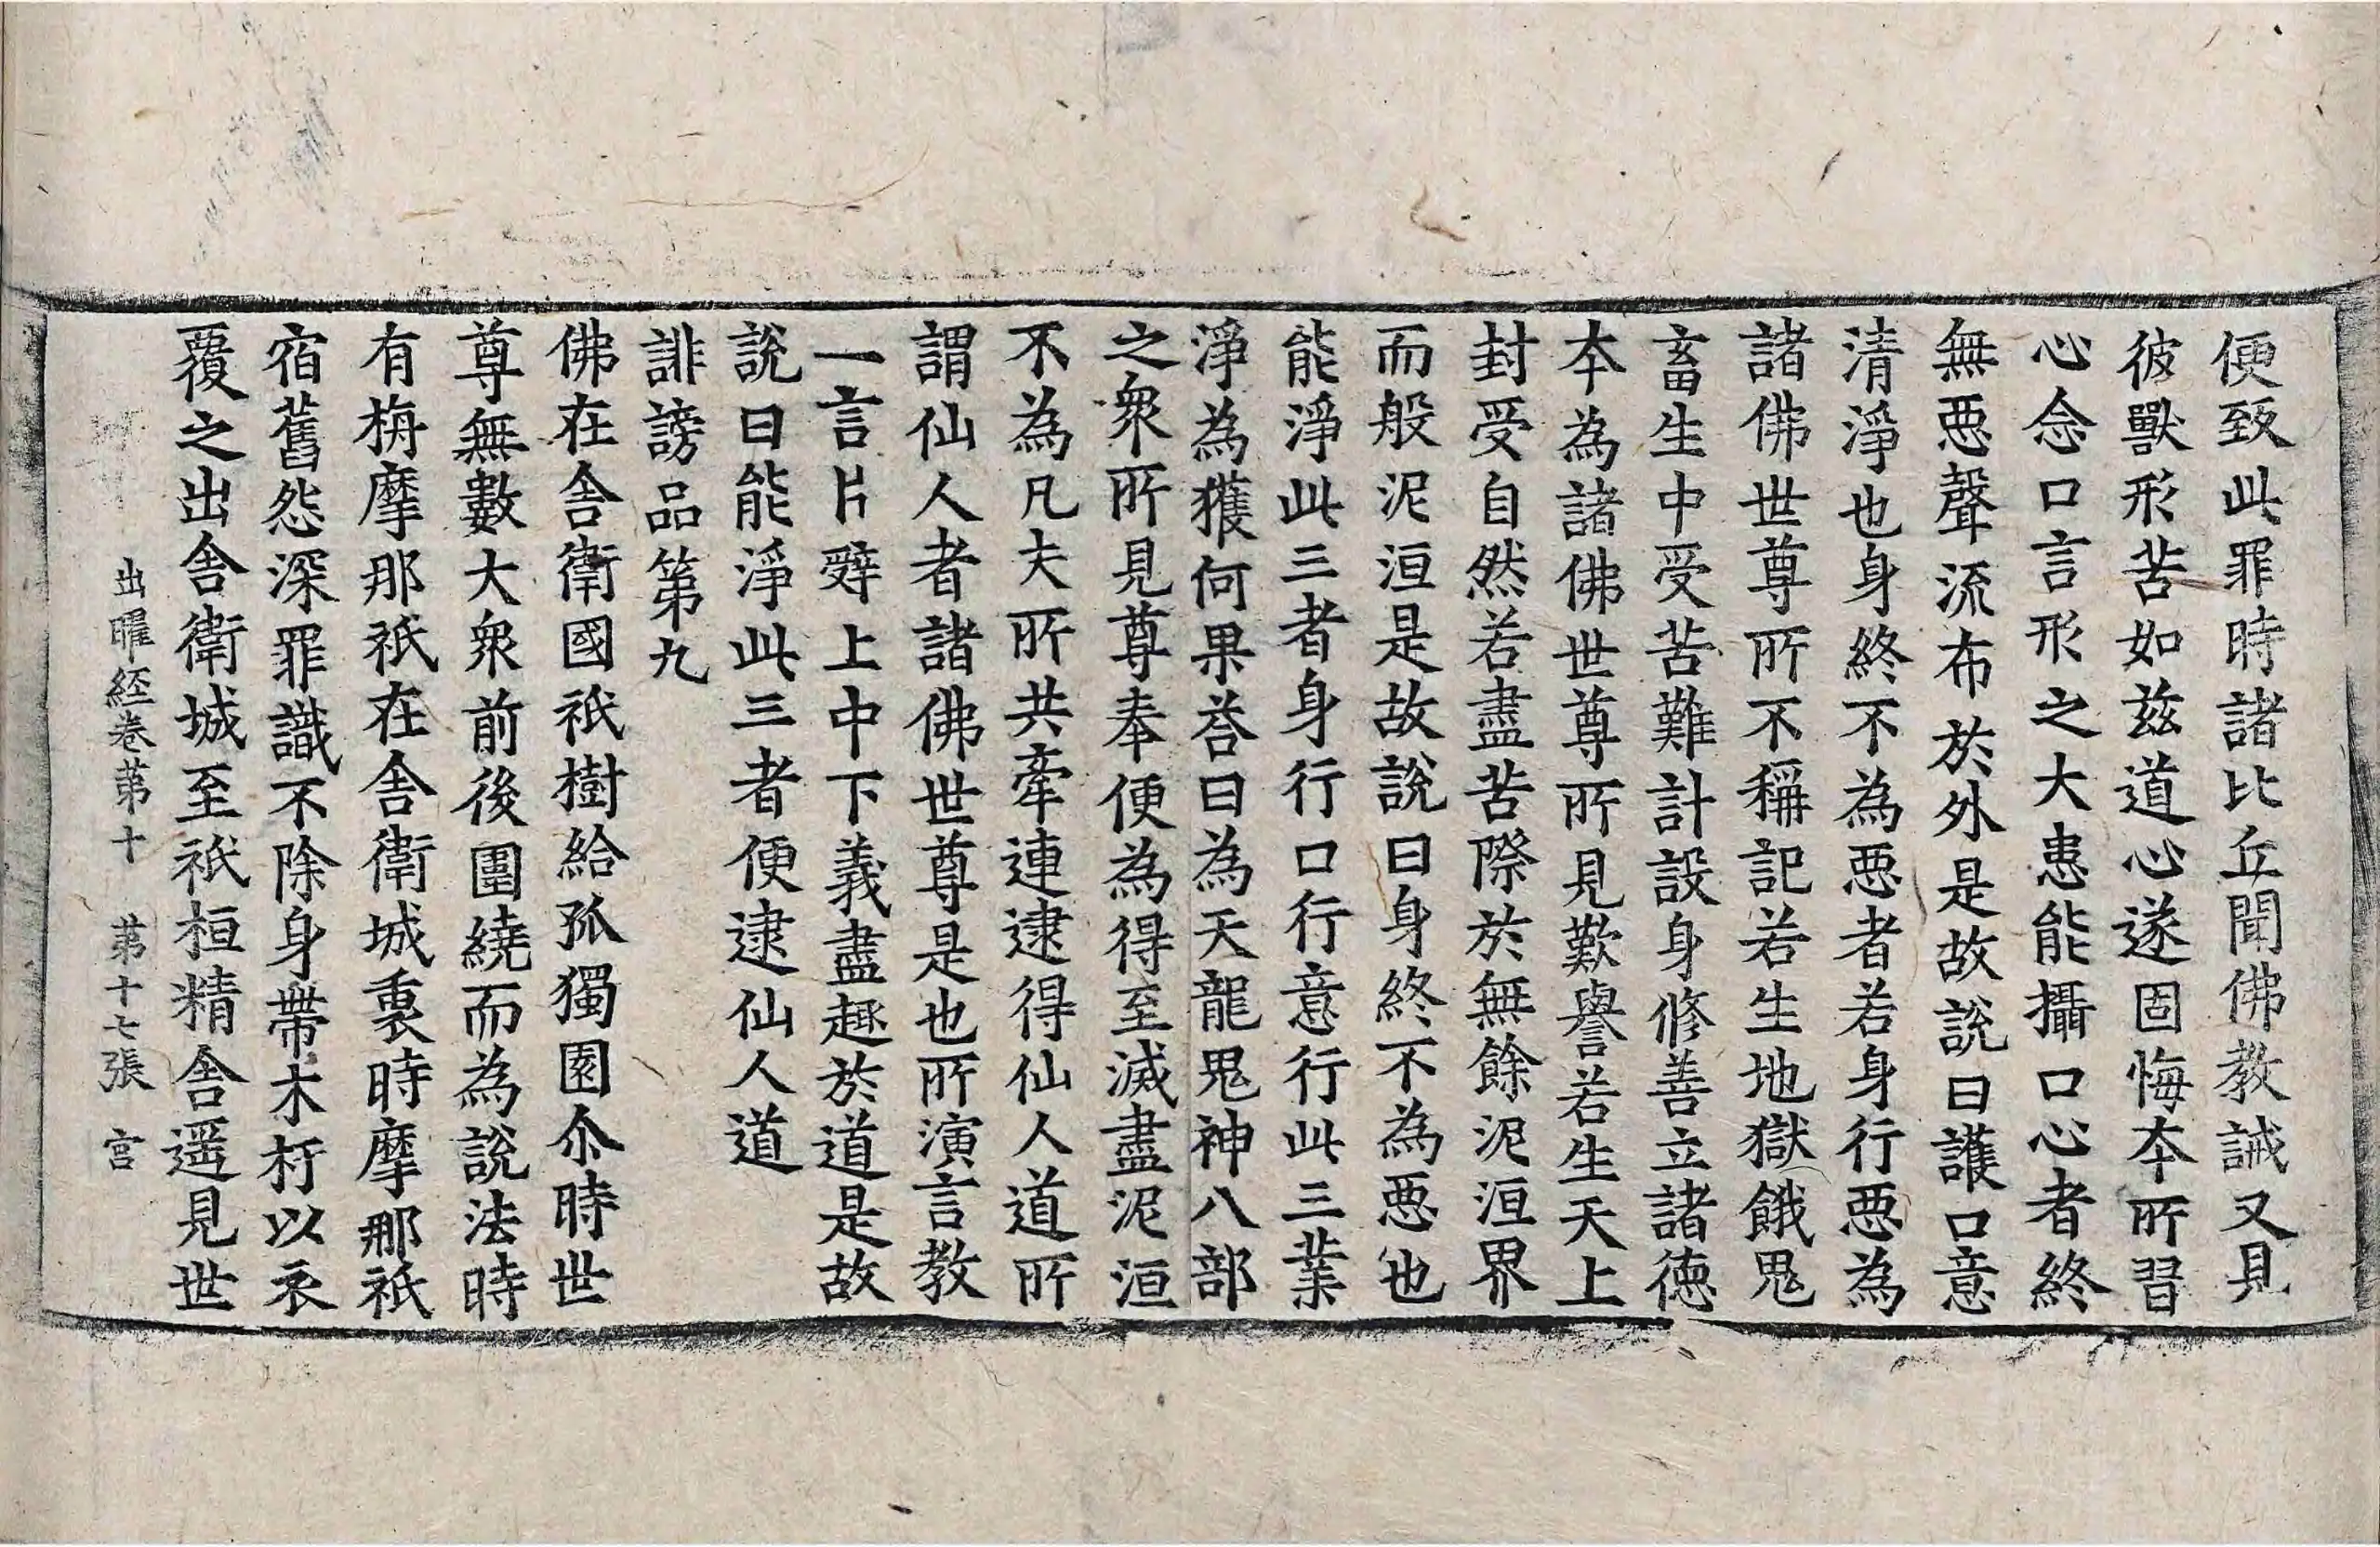 便致此罪時諸比丘聞佛教誡又見
彼獸形苦如兹道心遂固悔夲所習
心念口言形之大患能攝口心者終
無惡聲流布於外是故說曰護口意
清淨也身終不為惡者若身行惡為
諸佛世尊所不稱記若生地獄餓鬼
畜生中受苦難計設身修善立諸德
夲為諸佛世尊所見歎譽若生天上
封受自然若盡苦際於無餘泥洹界
而般泥洹是故說曰身終不為惡也
能淨此三者身行口行意行此三業
淨為獲何果荅曰為天龍鬼神八部
之衆所見尊奉便為得至滅盡泥洹
不為凡夫所共牽連逮得仙人道所
謂仙人者諸佛世尊是也所演言教
一言片辝上中下義盡趣於道是故
說曰能淨此三者便逮仙人道
誹謗品第九
佛在舍衛國祇樹給孤獨園尒時世
尊無數大衆前後圍繞而為說法時
有栴摩那祇在舍衛城裏時摩那祇
宿舊怨深罪識不除身帶木杅以衣
覆之出舍衛城至祇桓精舍遥見世
出曜経卷苐十　苐十七張　宮